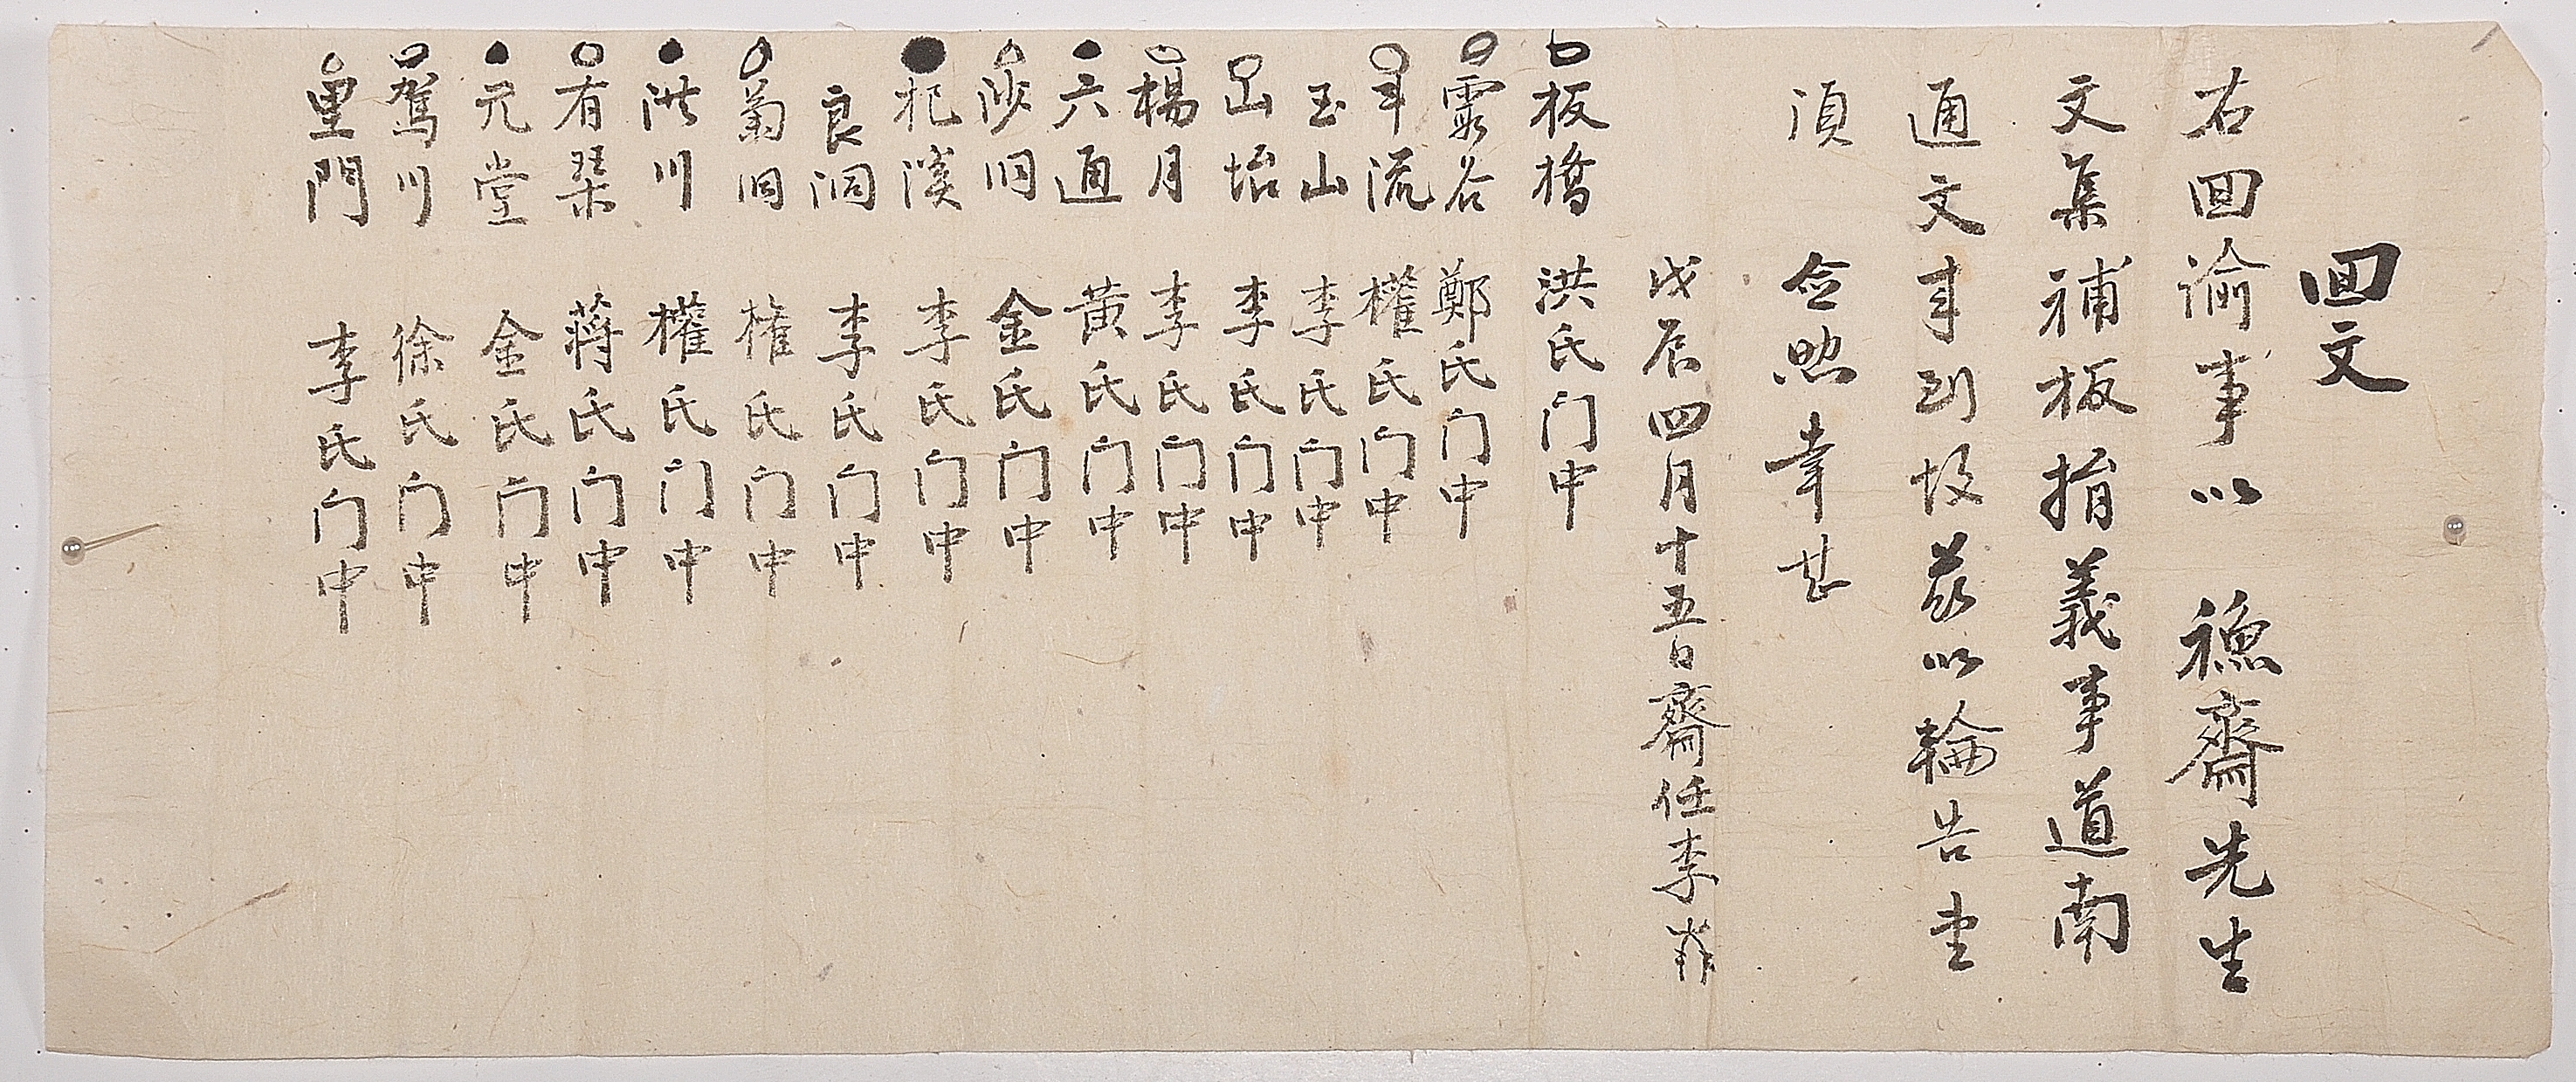 回文
右回諭事以 穩齋先生
文集補板捐義事道南
通文来到故玆以輪告望
須 僉照幸甚
戊辰四月十五日齋任李
板橋 洪氏门中
雲谷 鄭氏门中
流 權氏门中
玉山 李氏门中
李氏门中
楊月 李氏门中
六通 黃氏门中
沙洞 金氏门中
杞溪 李氏门中
良洞 李氏门中
菊洞 権氏门中
洪川 權氏门中
有琹 蔣氏门中
元堂 金氏门中
鴐川 徐氏门中
里門 李氏门中